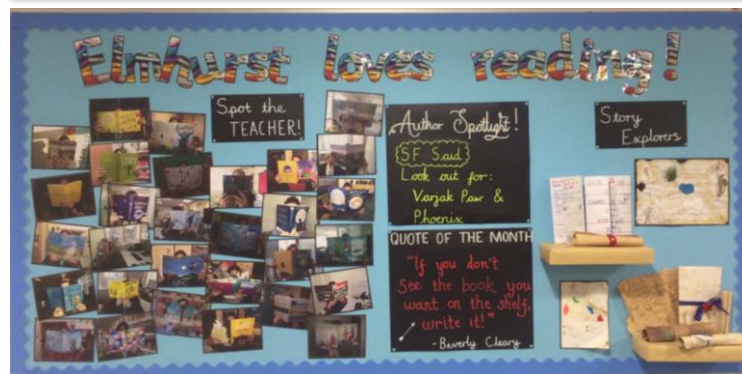 Elmhurst loves reading!
Spot the
TEACHER!
Author Spotlight!
SF Said
Look out for:
Varjak Paw &
Phoenix
QUOTE OF THE MONTH
"If you don't
See the book you
want on the shelf,
write it!"
- Beverly Cleary
Story
Explorers